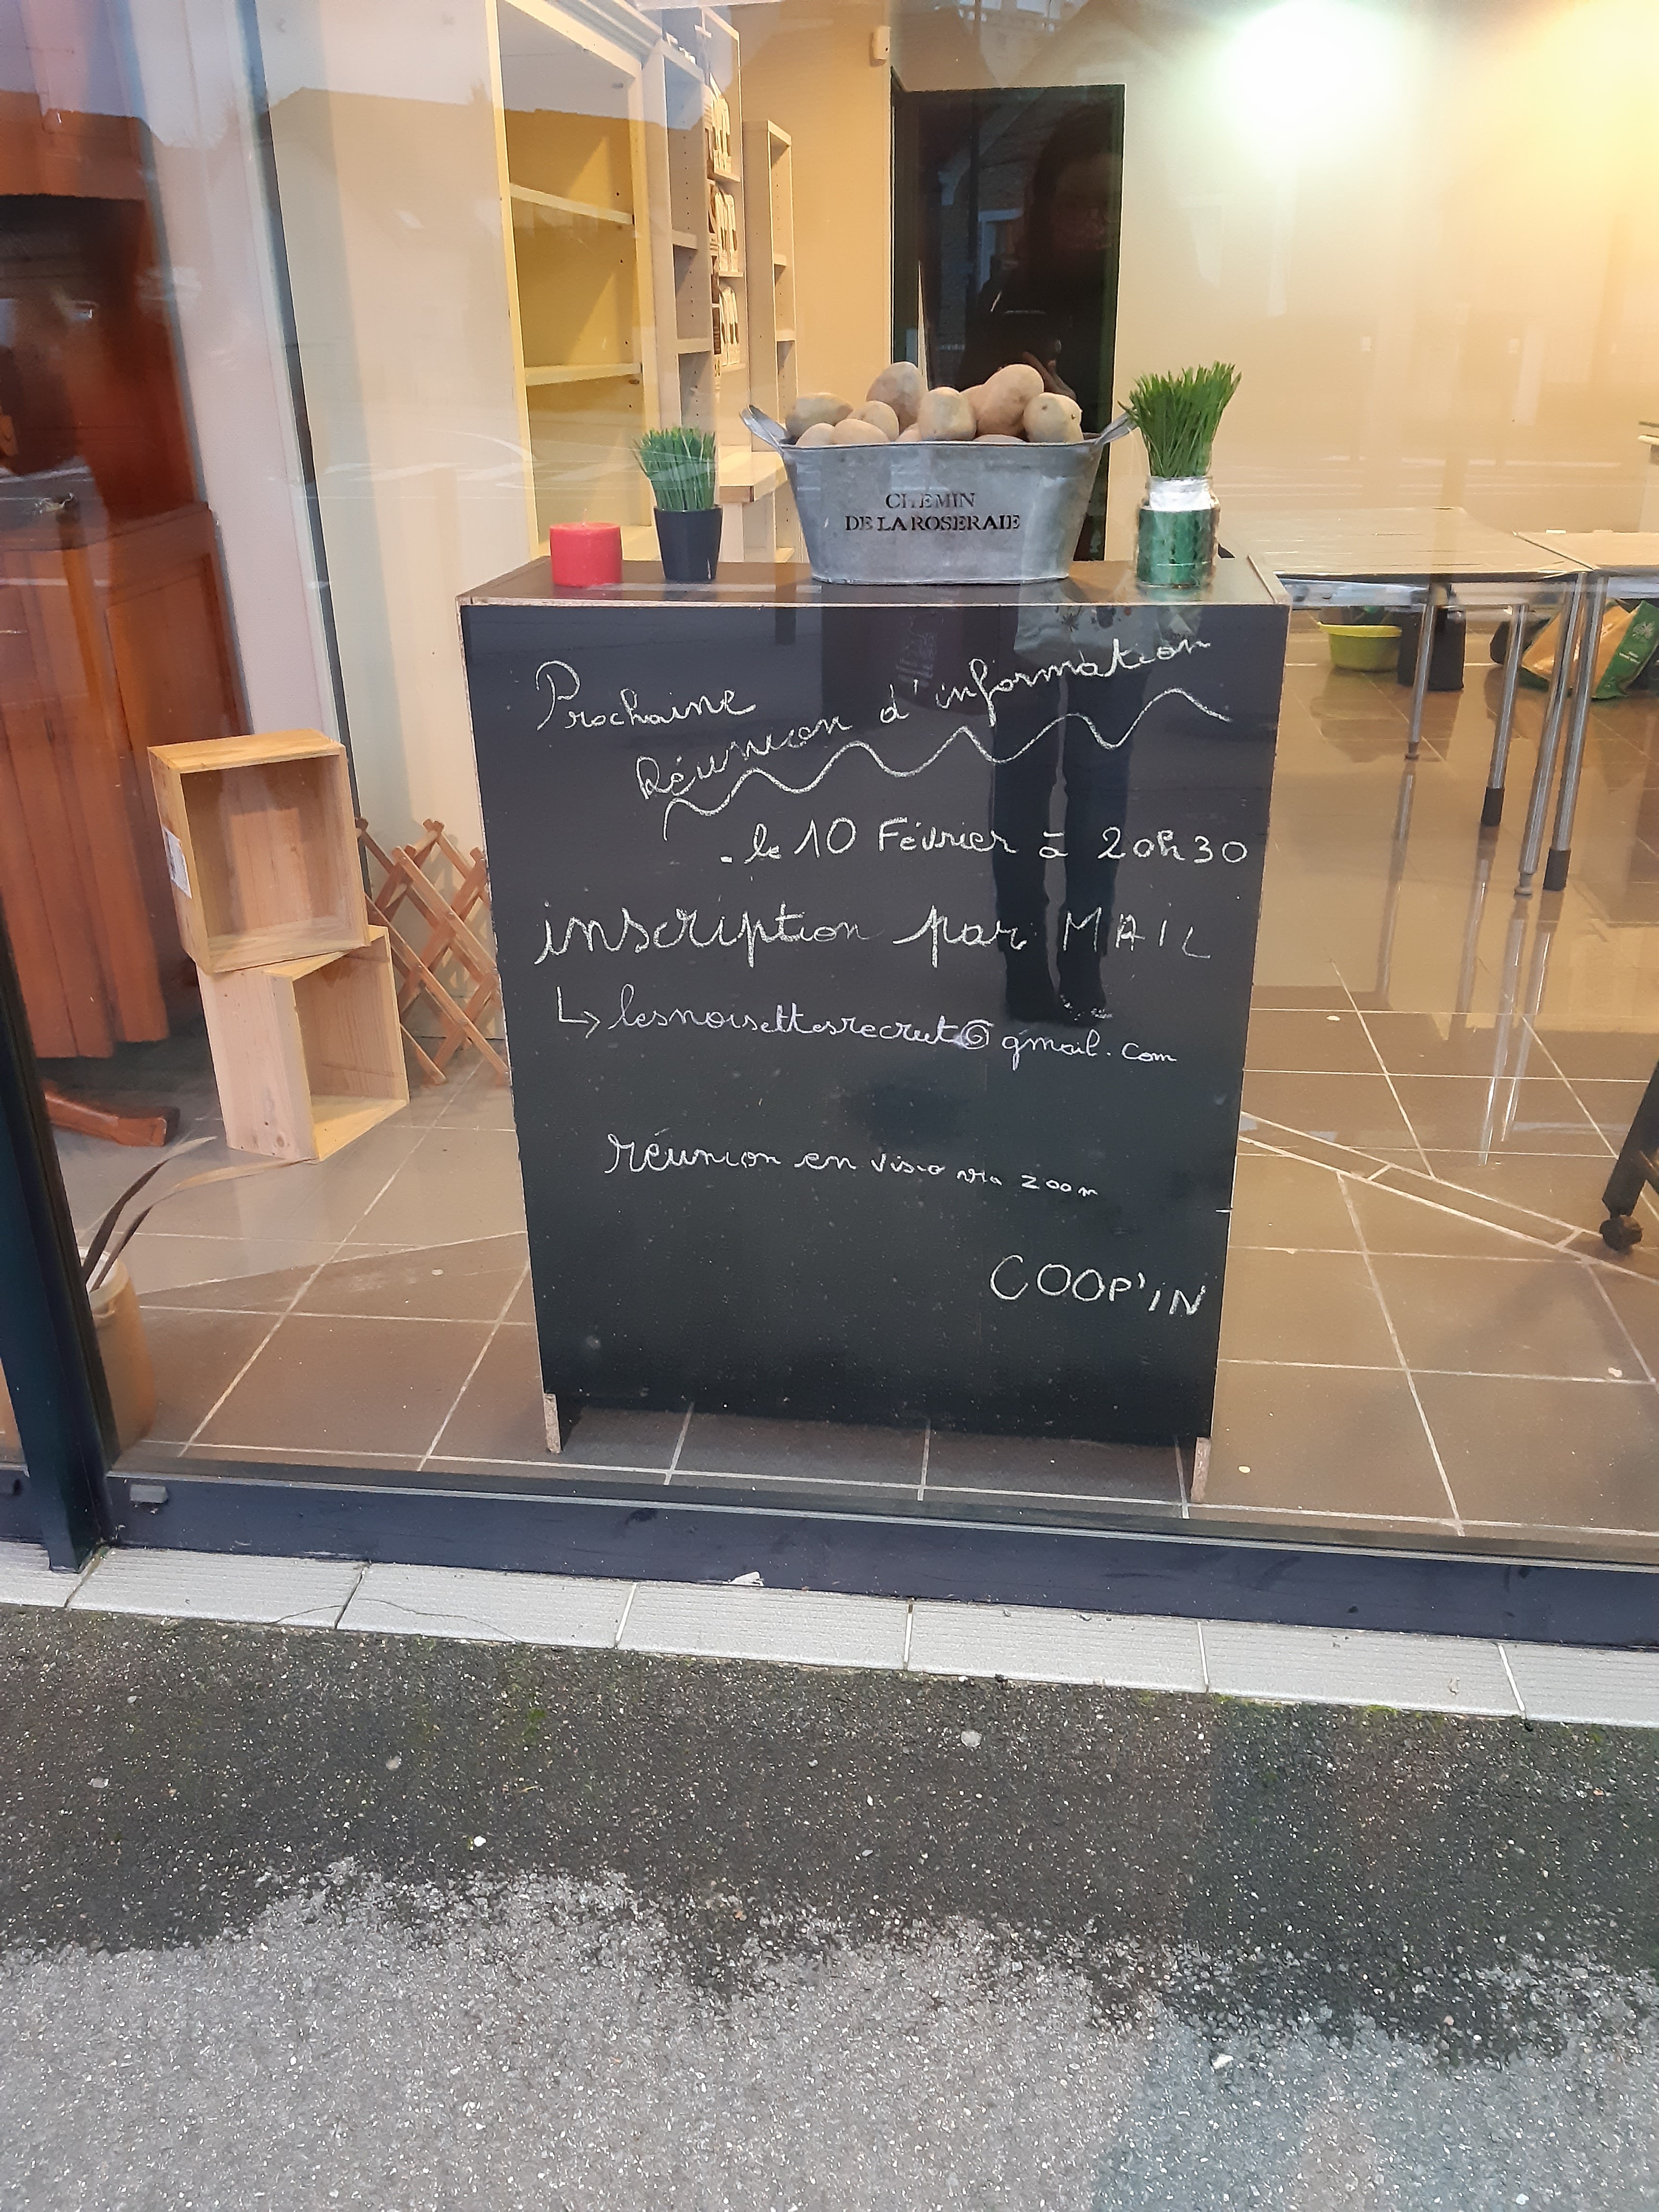 CHEMIN
DE LA ROSERAIE
Prochaine
Réunion d'information
. le 10 Février à 20h30
inscription par MAIL
↳ lesnoisettesrecrut@gmail.com
réunion en visio via zoom
COOP'IN